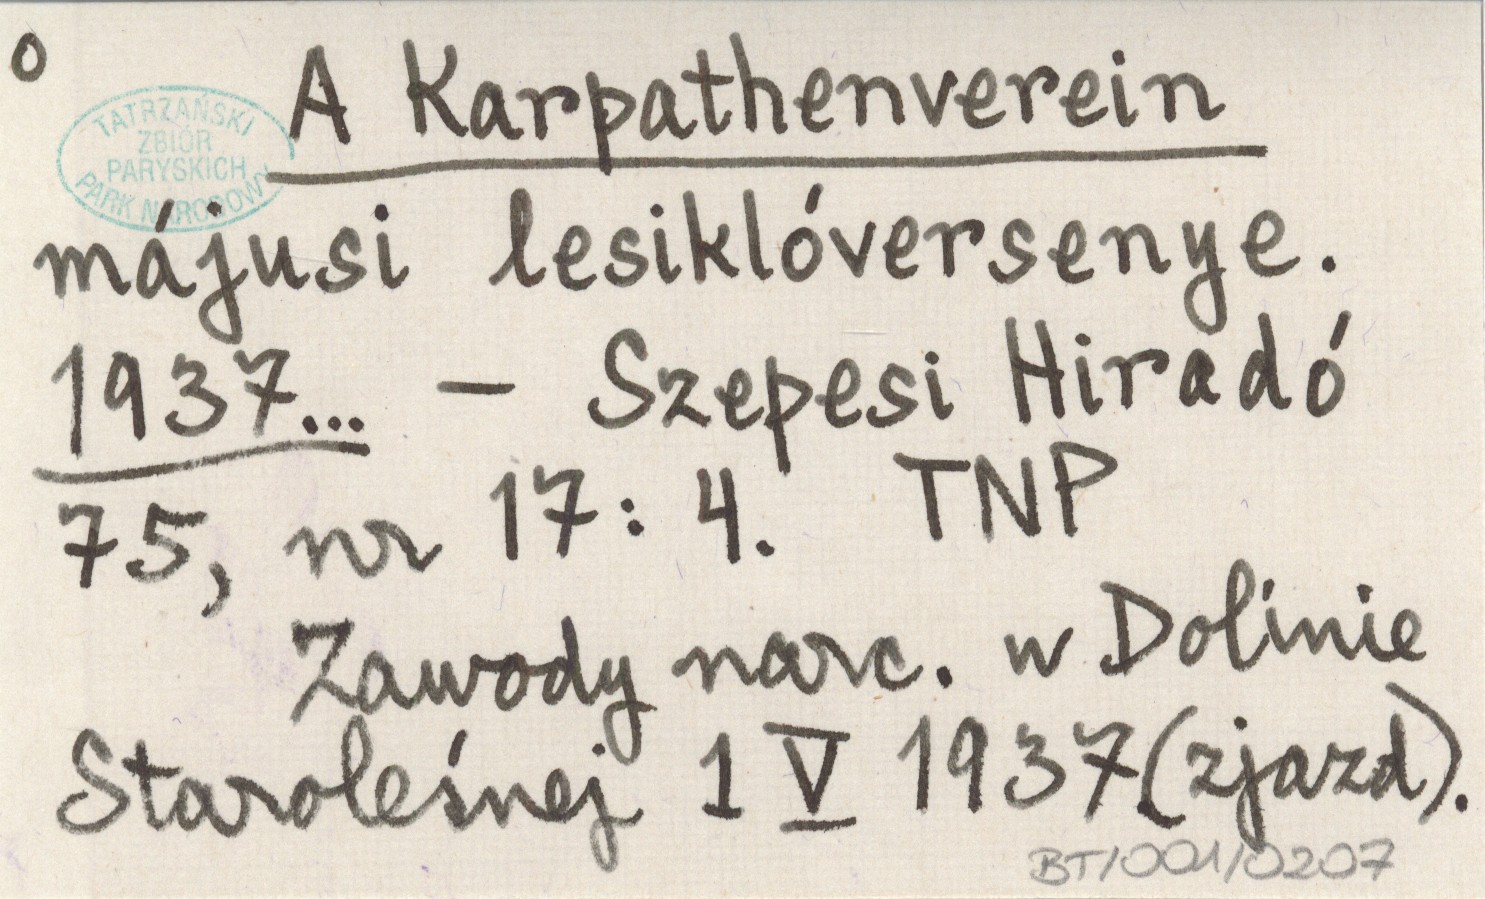 o
A Karpathenverein
TATRZAŃSKI
ZBIÓR
PARYSKICH
PARK NARODOWY
májusi lesiklóversenye.
1937... – Szepesi Hiradó
75, nr 17: 4. TNP
Zawody narc. w Dolinie
Staroleśnej 1 V 1937 (zjazd).
BT/001/0207